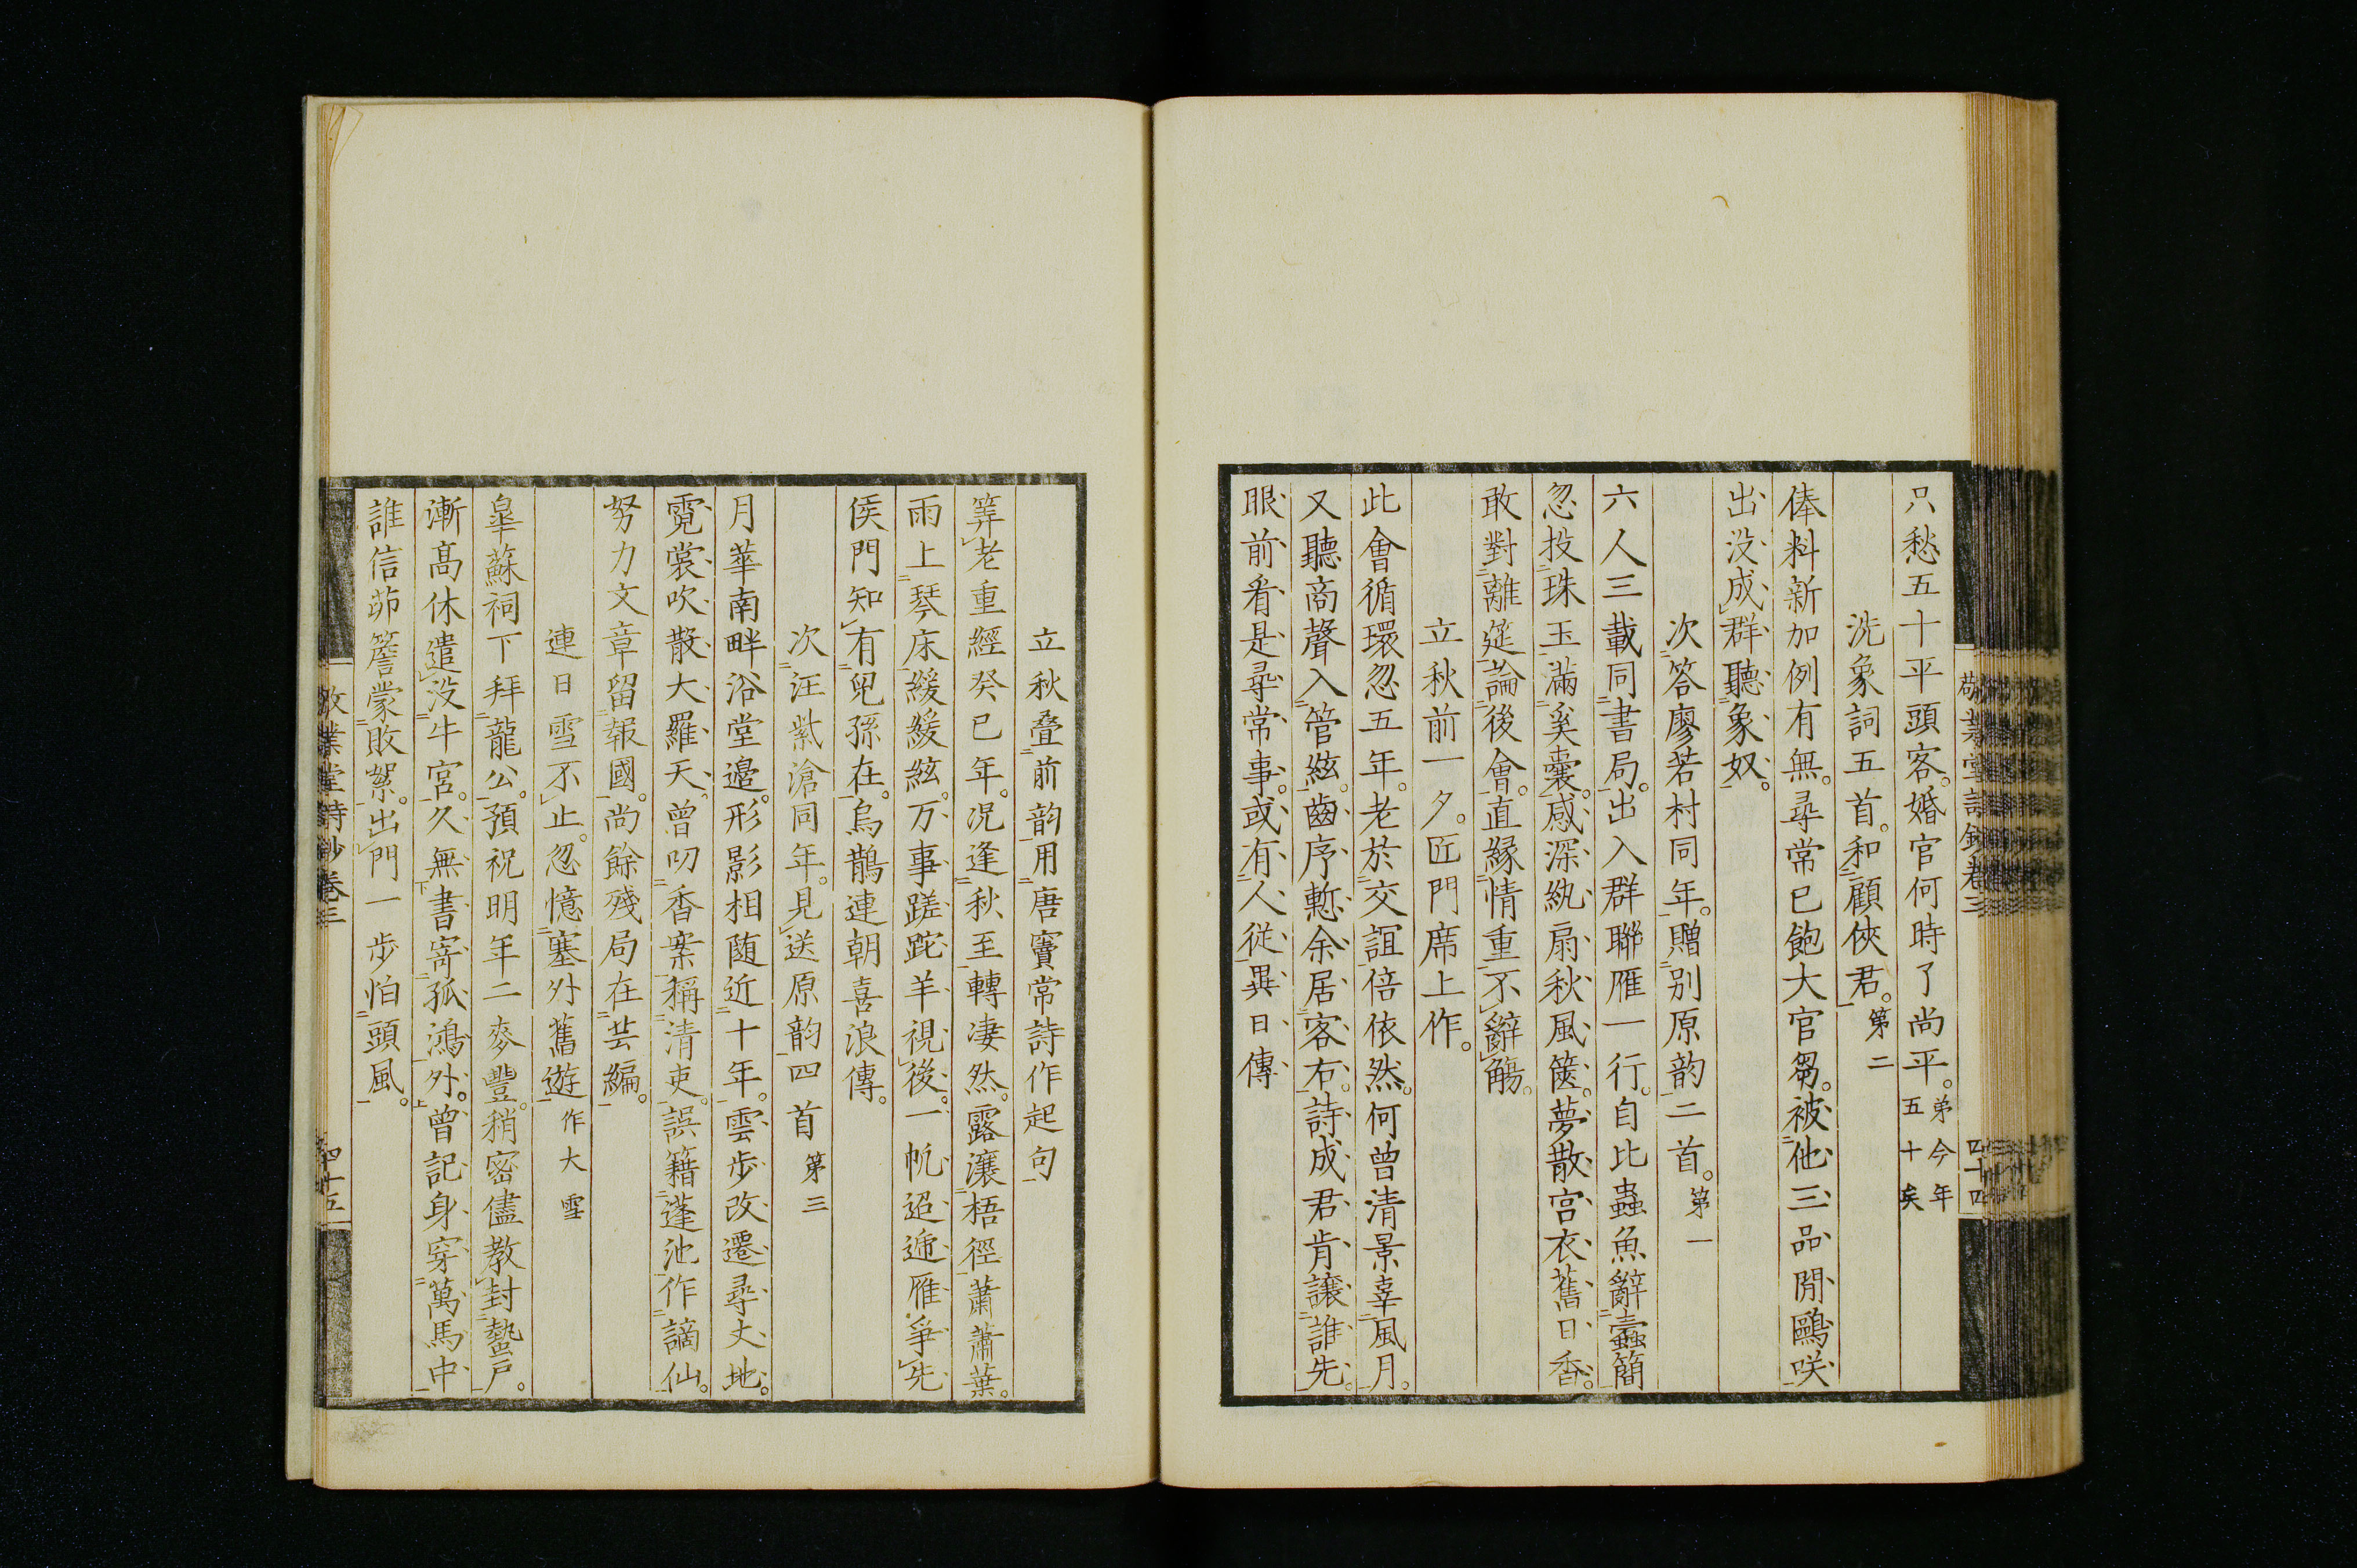 只愁五十平頭客。婚官何時了尚平。弟今年五十矣
洗象詞五首。和顧俠君。第二
俸料新加例有無。尋常已飽大官芻。被他三品閒鷗咲
出没成群聽象奴。
次答廖若村同年。贈別原韵二首。第一
六人三載同書局。出入群聯雁一行。自比蟲魚辭蠹簡
忽投珠玉滿奚囊。感深紈扇秋風篋。夢散宮衣舊日香。
敢對離筵論後會。直縁情重不辭觴。
立秋前一夕。匠門席上作。
此會循環忽五年。老於交誼倍依然。何曾清景辜風月。
又聽商聲入管絃。齒序慙余居客右。詩成君肯讓誰先。
眼前看是尋常事。或有人從異日傳
敬業堂詩鈔卷三 四十四
立秋叠前韵用唐竇常詩作起句
筭老重經癸巳年。况逢秋至轉凄然。露瀼梧徑蕭蕭葉。
雨上琴床緩緩絃。万事蹉跎羊視後。一帆迢遞雁爭先
侯門知有兒孫在。烏鵲連朝喜浪傳。
次汪紫滄同年。見送原韵四首 第三
月華南畔浴堂邉。形影相随近十年。雲步改遷尋丈地。
霓裳吹散大羅天。曾叨香案稱清吏。誤籍蓬池作謫仙。
努力文章留報國。尚餘殘局在芸編。
連日雪不止。忽憶塞外舊遊 作大雪
皐蘇祠下拜龍公。預祝明年二麥豐。稍密儘教封蟄戸。
漸高休遣没牛宮。久無書寄孤鴻外。曾記身穿萬馬中
誰信茆簷蒙敗絮。出門一步怕頭風。
敬業堂詩鈔卷三 四十五